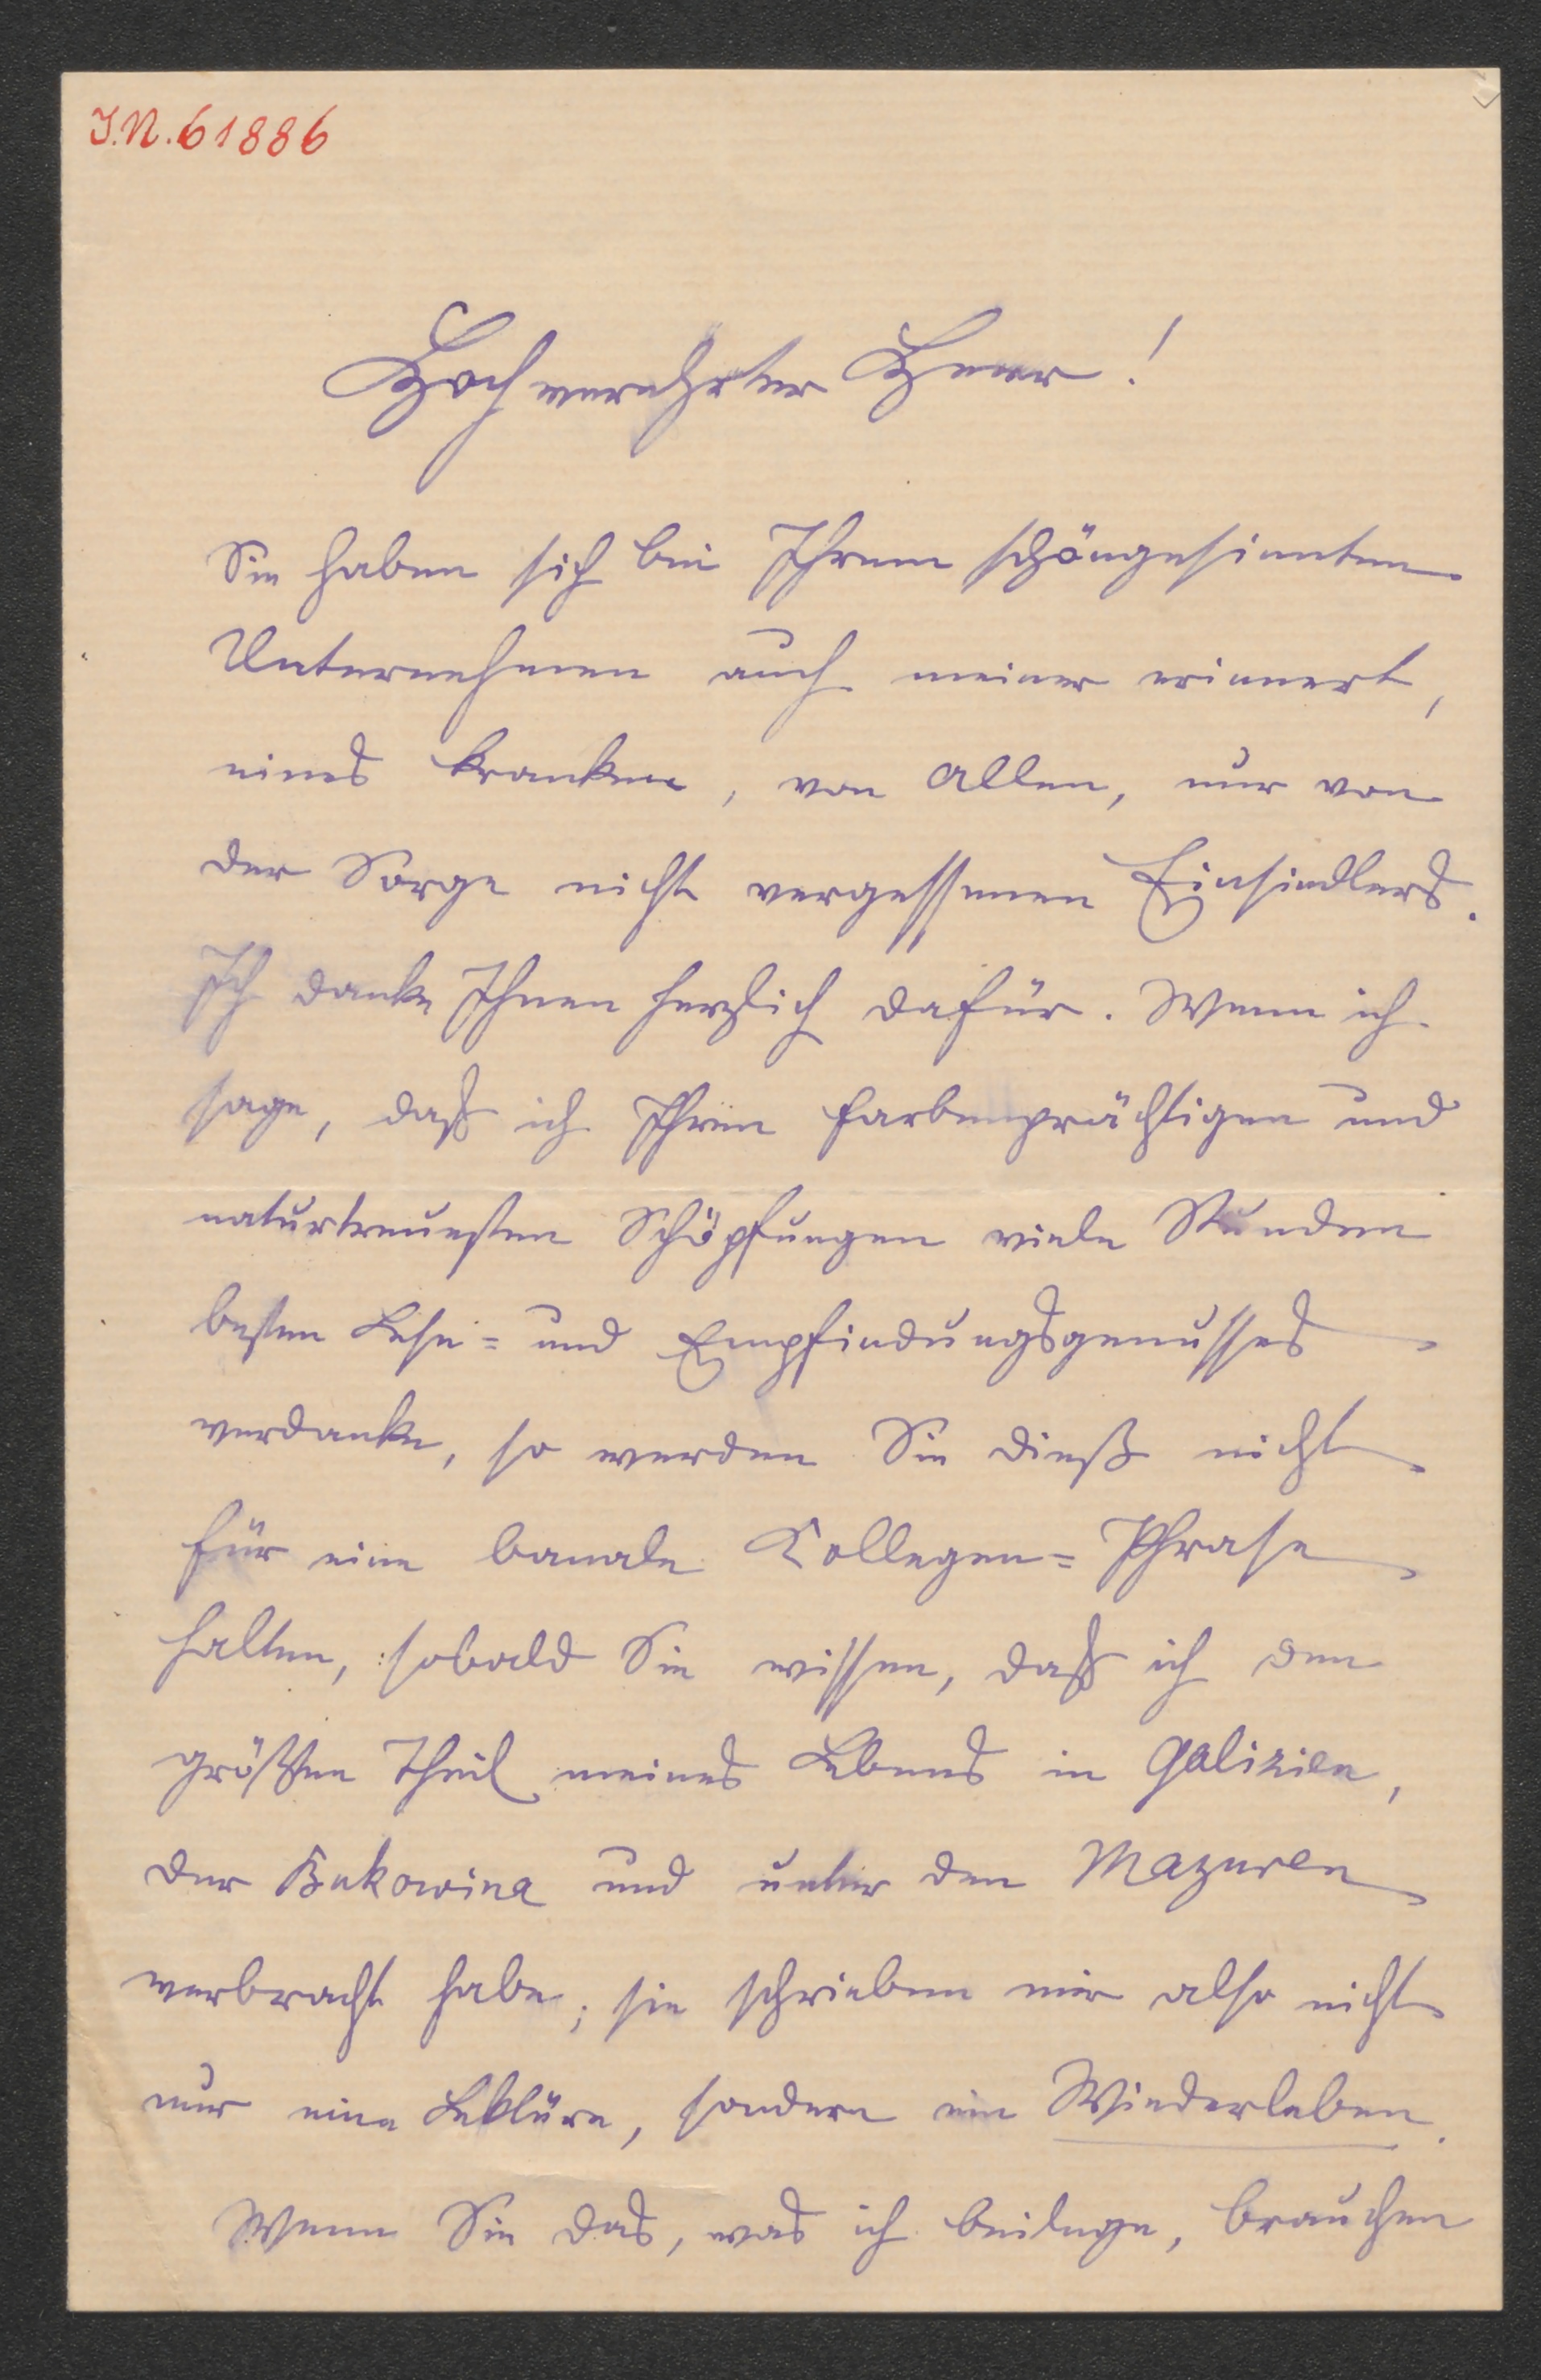 I.N. 61886
Hochverehrter Herr!
Sie haben sich bei Ihrem schöngesinnten
Unternehmen auch meiner erinnert,
eines kranken, von Allen, nur von
der Sorge nicht vergessenen Einsiedlers.
Ich danke Ihnen herzlich dafür. Wenn ich
sage, daß ich Ihren farbenprächtigen und
naturtreuesten Schöpfungen viele Stunden
besten Lese- und Empfindungsgenusses
verdanke, so werden Sie dieß nicht
für eine banale Kollegen-Phrase
halten, sobald Sie wissen, daß ich den
größten Theil meines Lebens in Galizien,
der Bukowina und unter den Mazuren
verbracht habe; sie schrieben mir also nicht
nur eine Lektüre, sondern ein Wiederleben.
Wenn Sie das, was ich beilege, brauchen